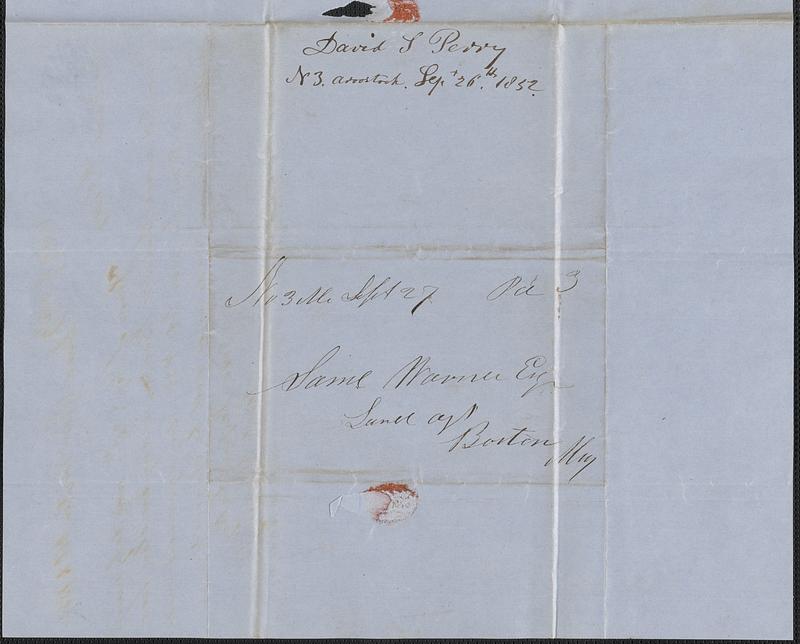 David S Perry
N 3. Aroostook. Sept 26th. 1852.
No 3 Me Sept 27 Pd 3
Saml Warner Esq
Land agt
Boston